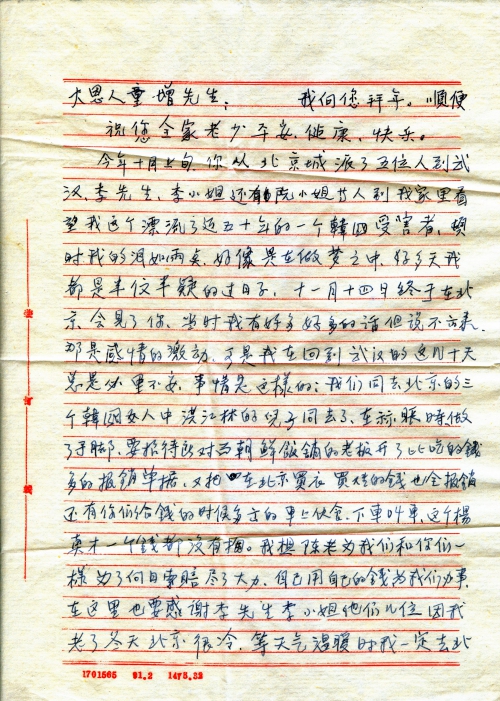 大恩人童增先生： 我向您拜年。顺便
祝您全家老少平安，健康、快乐。
今年十月上旬，你从北京城派了五位人到武
汉，李先生、李小姐还有阮小姐等人到我家里看
望我这个漂流了近五十年的一个韓国受害者，顿
时我的泪如雨点，好像是在做梦之中，好多天我
都是半信半疑的过日子，十一月十四日终于在北
京会见了你，当时我有好多好多的话但说不出来，
那是感情的激动，可是我在回到武汉的这几十天
总是心里不安，事情是这样的：我们同去北京的三
个韓国女人中洪江林的儿子同去了，在 时做
了手脚，要招待所对面朝鲜饭铺的老板开了比吃的钱
多的报销单据，又把在北京買衣 買 的钱也全报销
还有你们给钱的时候多立的車上伙食、下車叫車，这个楊
真才一个钱都没有 。我想陈老为我们和你们一
样为了向日索賠尽了大力，自己用自己的钱为我们办事，
在这里也要感谢李先生李小姐他们几位 因我
老了冬天北京很冷，等天气温暖时我一定去北
1701565 91.2 1475.32